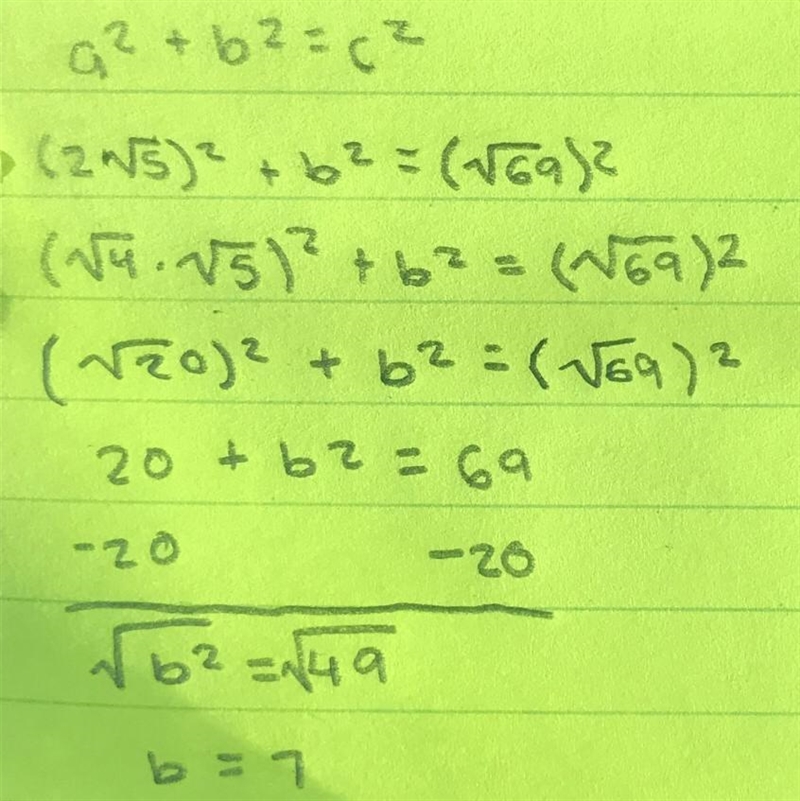 a² + b² = c²
(2√5)² + b² = (√69)²
(√4 · √5)² + b² = (√69)²
(√20)² + b² = (√69)²
20 + b² = 69
-20 -20
√b² = √49
b = 7